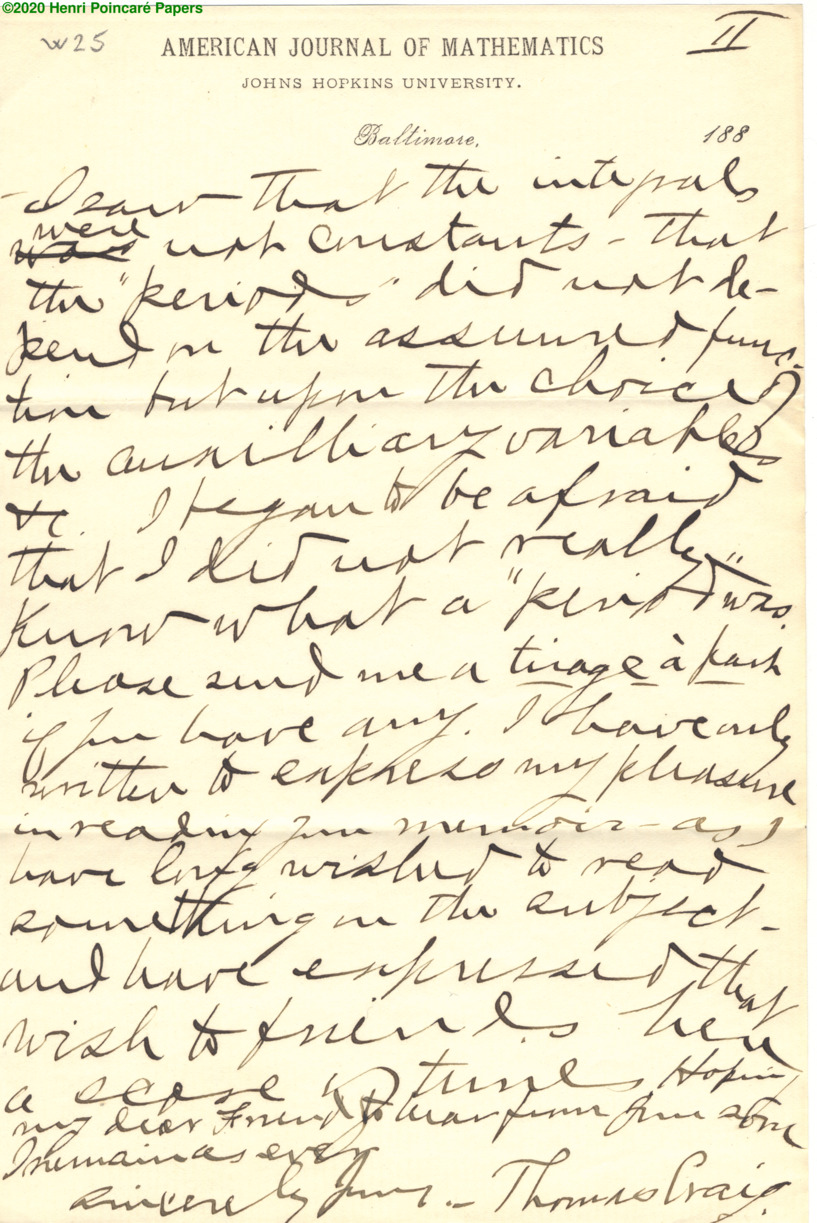 ©2020 Henri Poincaré Papers
W25
II
AMERICAN JOURNAL OF MATHEMATICS
JOHNS HOPKINS UNIVERSITY.
Baltimore, 188
- I saw that the integrals
were
was not constants - that
the "periods" did not de-
pend on the assumed func-
tion but upon the choice of
the auxilliary variables
&c. I began to be afraid
that I did not really
know what a "period" was.
Please send me a tirage à part
if you have any. I have only
written to express my pleasure
in reading your memoir - as I
have long wished to read
something on the subject -
and have expressed that
wish to friends here
a times Hoping
my dear Friend to hear from you soon
I remain as ever
sincerely yours. - Thomas Craig.